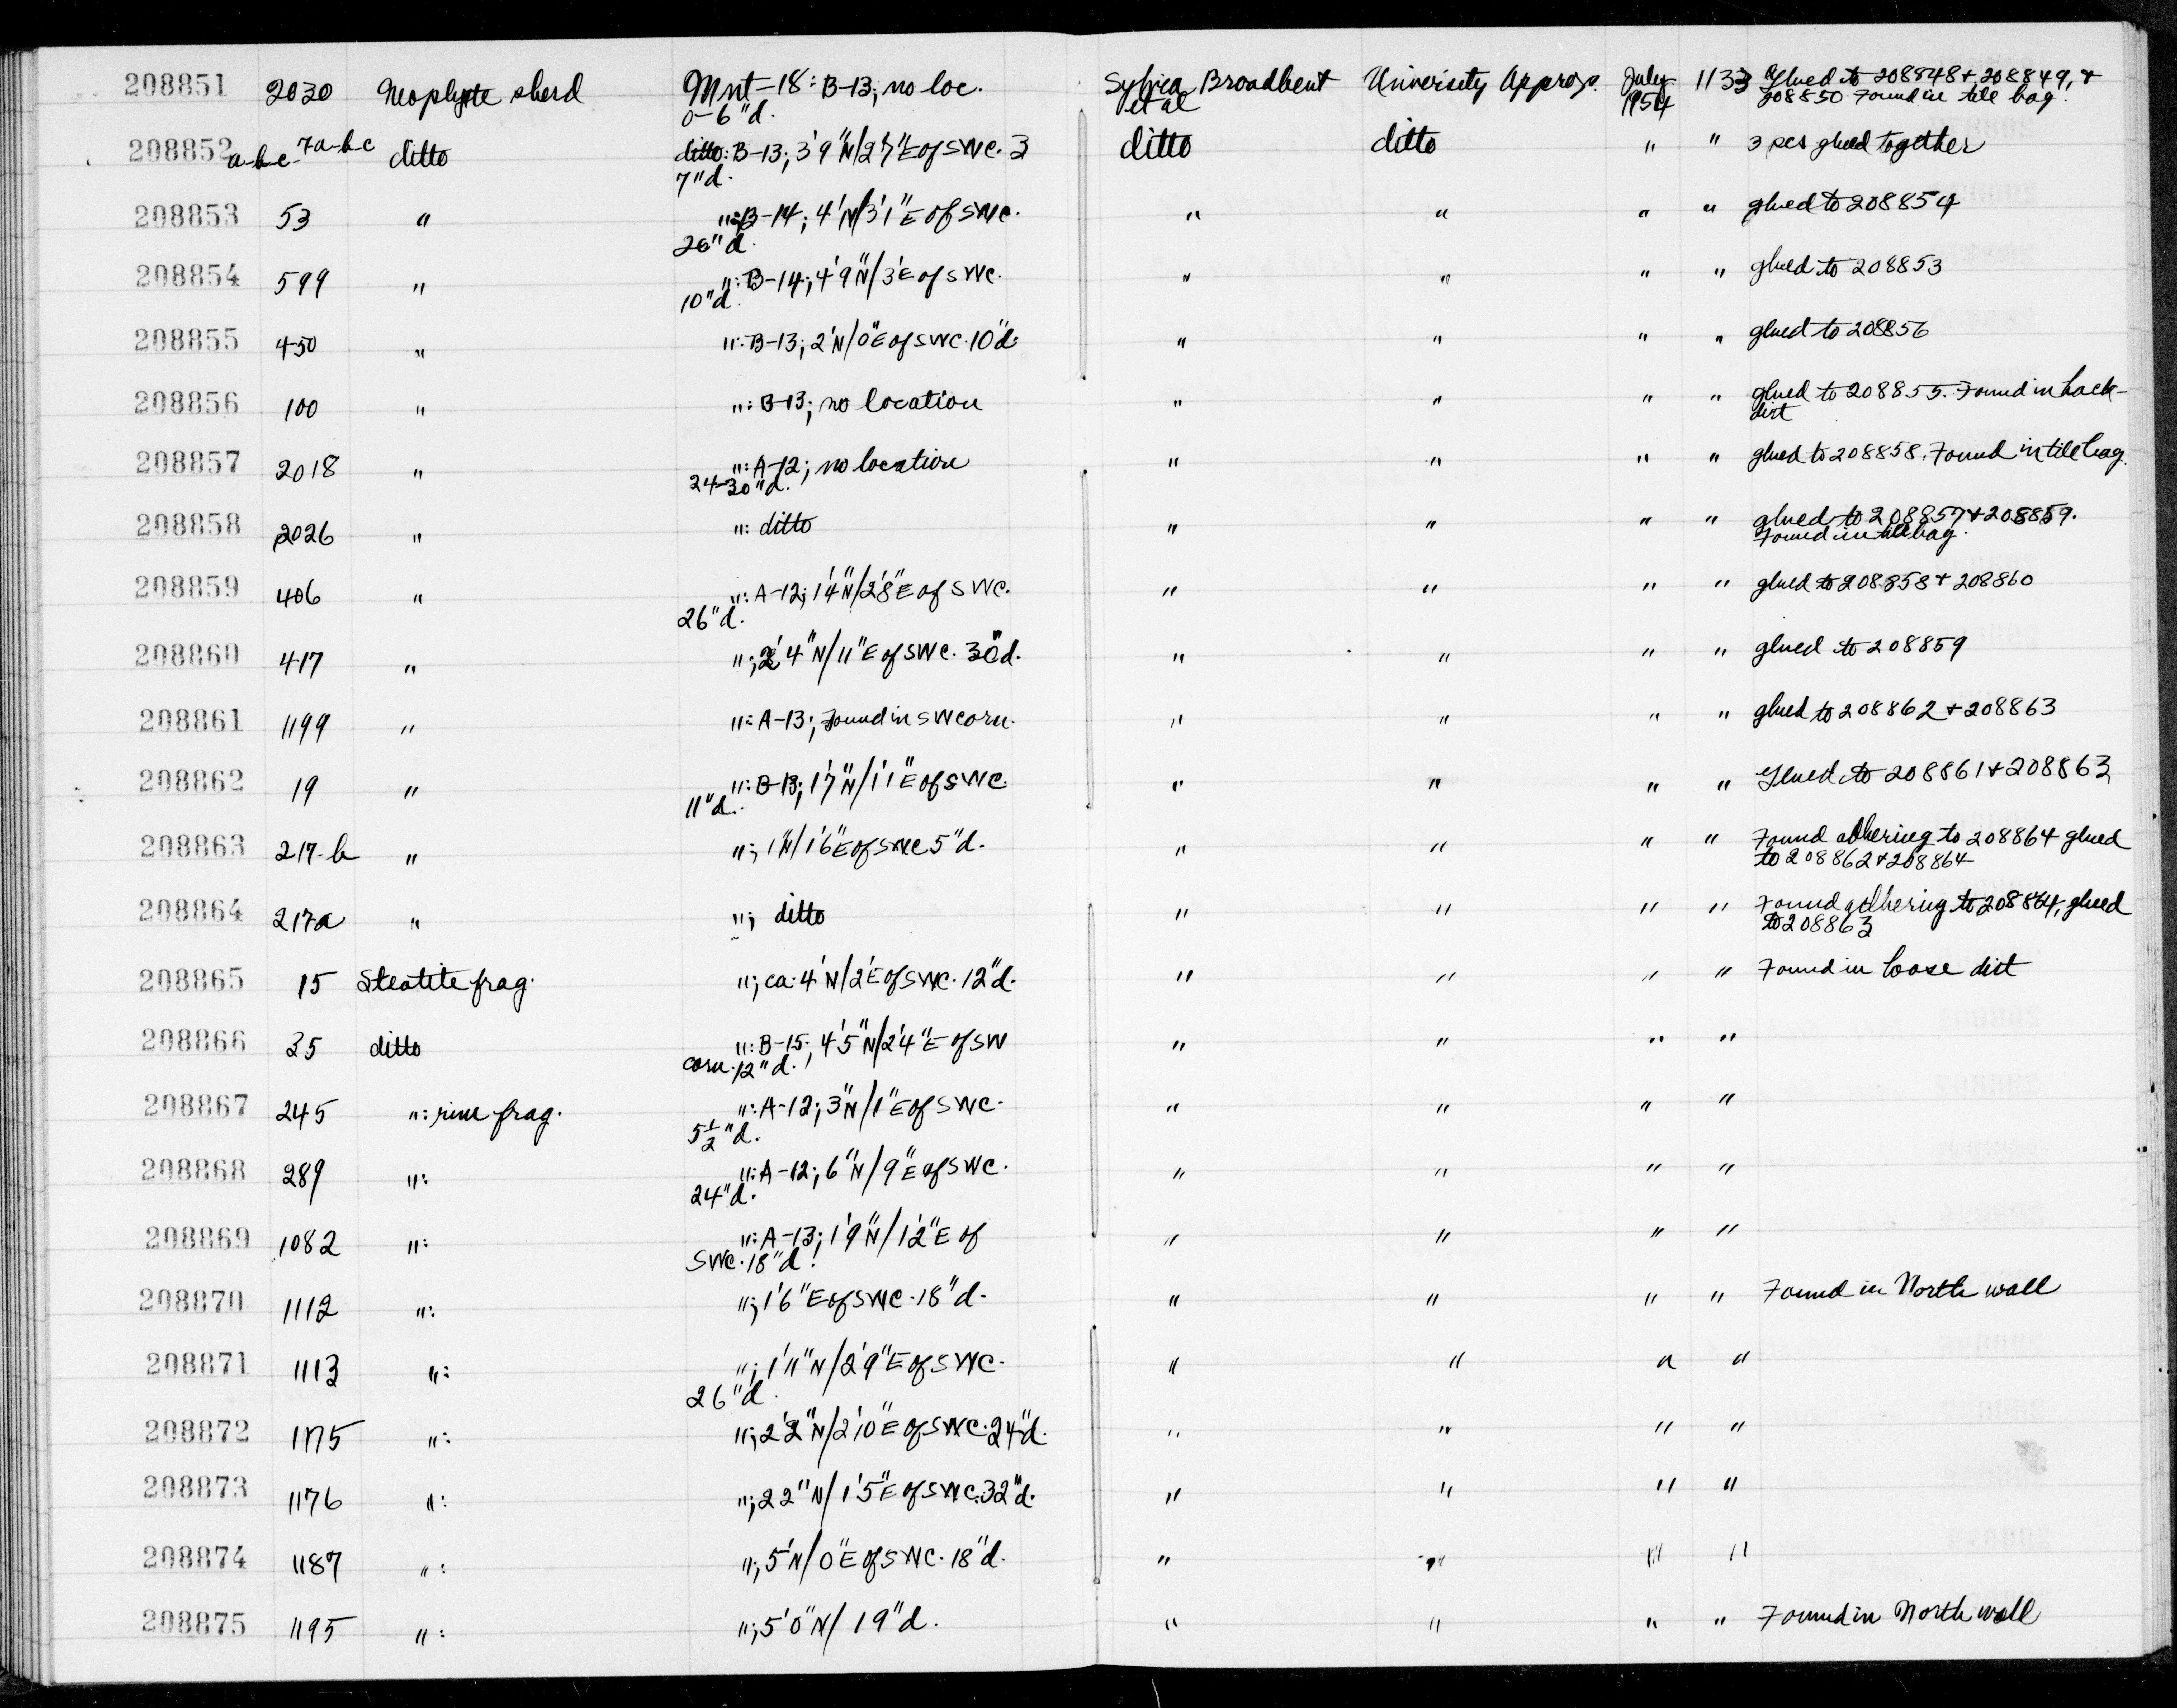 208851 2030 Neophyte sherd Mnt-18: B-13; no loc. Sylvia Broadbent University Approp. July 1133 Glued to 208848 + 208849, +
0-6"d. et al 1954 208850. Found in tile bag.
208852 a-b-c 7a-b-c ditto ditto: B-13; 3'9"N/2'7"E of SWC. 3 ditto ditto " " 3 pcs glued together
7"d.
208853 53 " ": B-14; 4'N/3'1"E of SWC. " " " " glued to 208854
26"d.
208854 599 " ": B-14; 4'9"N/3'E of SWC. " " " " glued to 208853
10"d.
208855 450 " ": B-13; 2'N/0"E of SWC. 10"d. " " " " glued to 208856
208856 100 " ": B-13; no location " " " " glued to 208855. Found in back-
dirt
208857 2018 " ": A-12; no location " " " " glued to 208858. Found in tile bag.
24-30"d.
208858 2026 " ": ditto " " " " glued to 208857 + 208859.
Found in tile bag.
208859 406 " ": A-12; 1'4"N/2'8"E of SWC. " " " " glued to 208858 + 208860
26"d.
208860 417 " "; 2'4"N/11"E of SWC. 30"d. " " " " glued to 208859
208861 1199 " ": A-13; Found in SW corn. " " " " glued to 208862 + 208863
208862 19 " ": B-13; 1'7"N/1'1"E of SWC. " " " " Glued to 208861 + 208863
11"d.
208863 217-b " "; 1"N/1'6"E of SWC 5"d. " " " " Found adhering to 208864 glued
to 208862 + 208864
208864 217a " "; ditto " " " " Found adhering to 208864, glued
to 208863
208865 15 Steatite frag. "; ca. 4'N/2'E of SWC. 12"d. " " " " Found in loose dirt
208866 35 ditto ": B-15; 4'5"N/2'4"E of SW " " " "
corn. 12"d.
208867 245 ": rim frag. ": A-12; 3"N/1"E of SWC. " " " "
5½"d.
208868 289 ": ": A-12; 6"N/9"E of SWC. " " " "
24"d.
208869 1082 ": ": A-13; 1'9"N/1'2"E of " " " "
SWC. 18"d.
208870 1112 ": "; 1'6"E of SWC. 18"d. " " " " Found in North wall
208871 1113 ": "; 1'11"N/2'9"E of SWC. " " " "
26"d.
208872 1175 ": "; 2'2"N/2'10"E of SWC. 24"d. " " " "
208873 1176 ": "; 22"N/1'5"E of SWC. 32"d. " " " "
208874 1187 ": "; 5'N/0"E of SWC. 18"d. " " " "
208875 1195 ": "; 5'0"N/ 19"d. " " " " Found in North wall